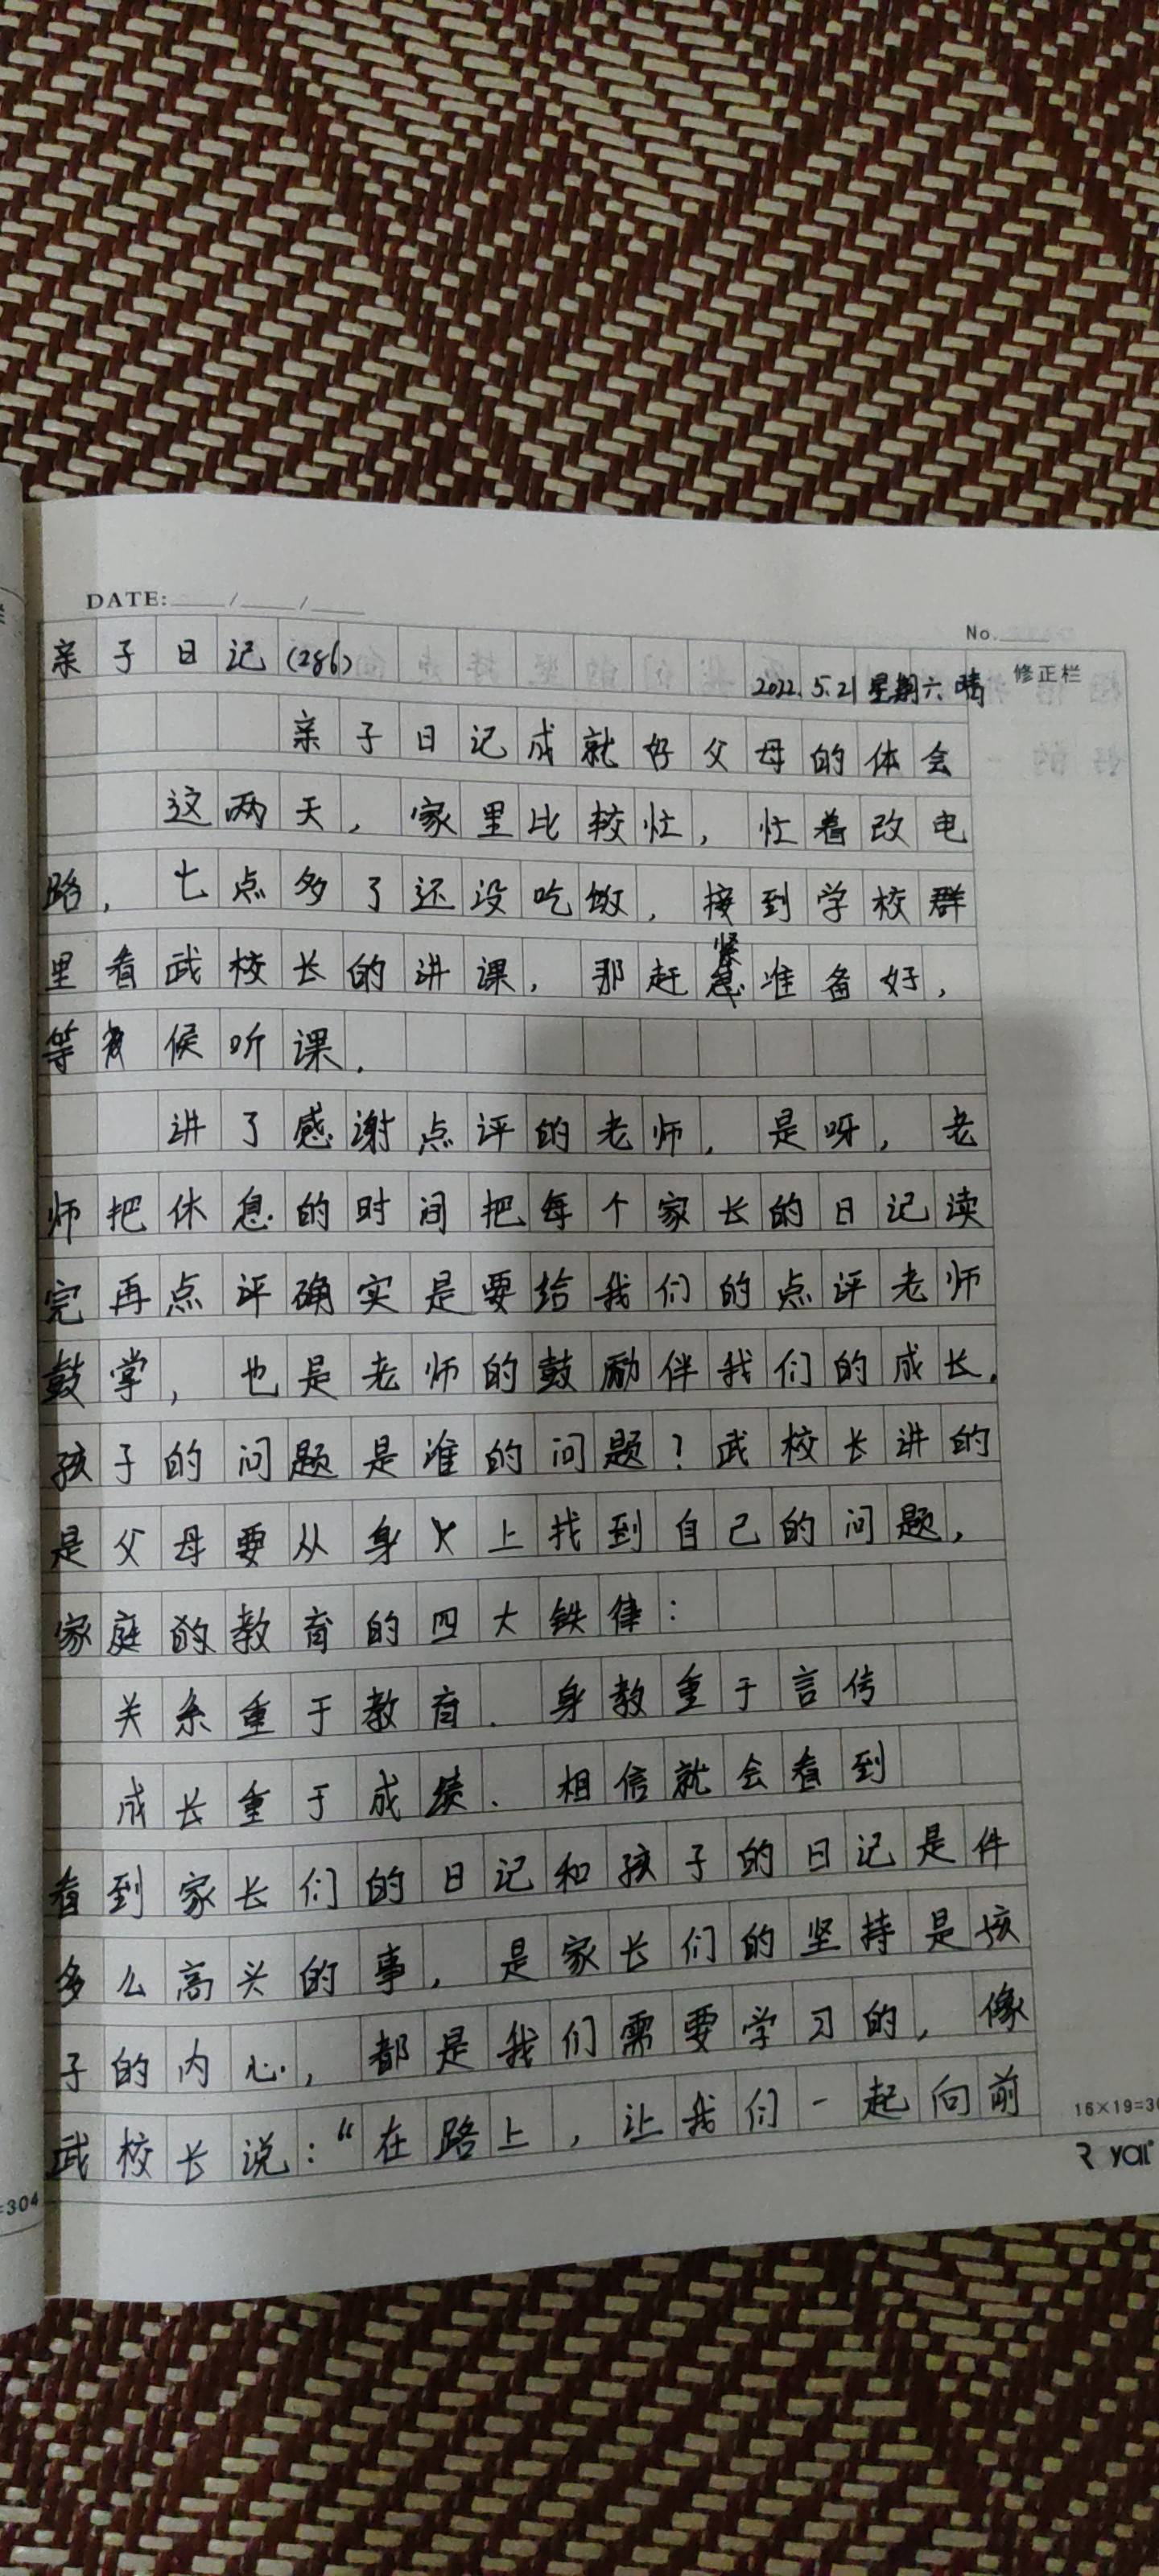 DATE: ___/___/___
No.
亲子日记(286) 2022.5.21 星期六 晴
修正栏
亲子日记成就好父母的体会
这两天，家里比较忙，忙着改电
路，七点多了还没吃饭，接到学校群
里看武校长的讲课，那赶紧准备好，
等候听课.
讲了感谢点评的老师，是呀，老
师把休息的时间把每个家长的日记读
完再点评确实是要给我们的点评老师
鼓掌，也是老师的鼓励伴我们的成长.
孩子的问题是谁的问题？武校长讲的
是父母要从身上找到自己的问题，
家庭的教育的四大铁律：
关系重于教育.身教重于言传
成长重于成绩.相信就会看到
看到家长们的日记和孩子的日记是件
多么高兴的事，是家长们的坚持是孩
子的内心，都是我们需要学习的，像
武校长说：“在路上，让我们一起向前
16×19=30
=304